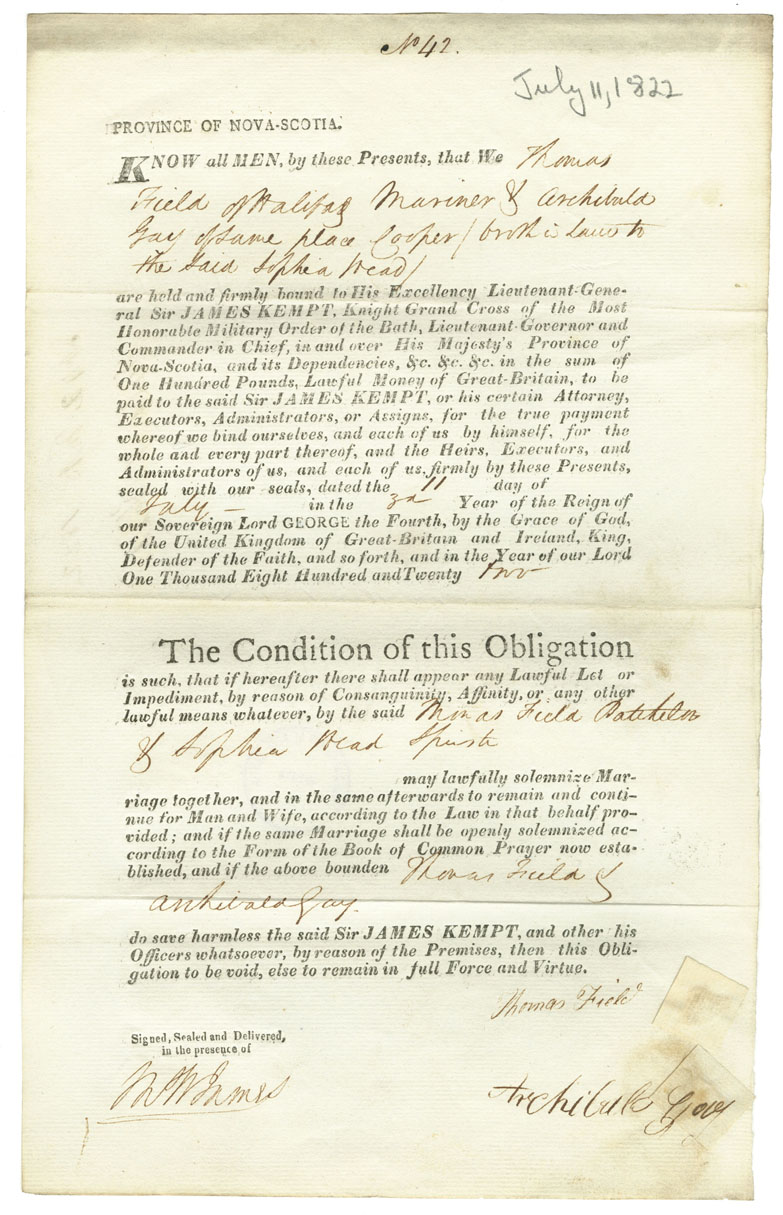 No 42.
July 11, 1822
PROVINCE OF NOVA-SCOTIA.
KNOW all MEN, by these Presents, that We Thomas
Field of Halifax Mariner & Archibald
Gay of same place Cooper / broth in law to
the said Sophia Head /
are held and firmly bound to His Excellency Lieutenant-Gene-
ral Sir JAMES KEMPT, Knight Grand Cross of the Most
Honorable Military Order of the Bath, Lieutenant-Governor and
Commander in Chief, in and over His Majesty's Province of
Nova-Scotia, and its Dependencies, &c. &c. &c. in the sum of
One Hundred Pounds, Lawful Money of Great-Britain, to be
paid to the said Sir JAMES KEMPT, or his certain Attorney,
Executors, Administrators, or Assigns, for the true payment
whereof we bind ourselves, and each of us by himself, for the
whole and every part thereof, and the Heirs, Executors, and
Administrators of us, and each of us, firmly by these Presents,
sealed with our seals, dated the 11 day of
July - in the 3d Year of the Reign of
our Sovereign Lord GEORGE the Fourth, by the Grace of God,
of the United Kingdom of Great-Britain and Ireland, King,
Defender of the Faith, and so forth, and in the Year of our Lord
One Thousand Eight Hundred and Twenty two
The Condition of this Obligation
is such, that if hereafter there shall appear any Lawful Let or
Impediment, by reason of Consanguinity, Affinity, or any other
lawful means whatever, by the said Thomas Field Batchelor
& Sophia Head Spinstr
may lawfully solemnize Mar-
riage together, and in the same afterwards to remain and conti-
nue for Man and Wife, according to the Law in that behalf pro-
vided; and if the same Marriage shall be openly solemnized ac-
cording to the Form of the Book of Common Prayer now esta-
blished, and if the above bounden Thomas Field &
Archibald Gay.
do save harmless the said Sir JAMES KEMPT, and other his
Officers whatsoever, by reason of the Premises, then this Obli-
gation to be void, else to remain in full Force and Virtue.
Thomas Field
Signed, Sealed and Delivered,
in the presence of
James
Archibald Gay